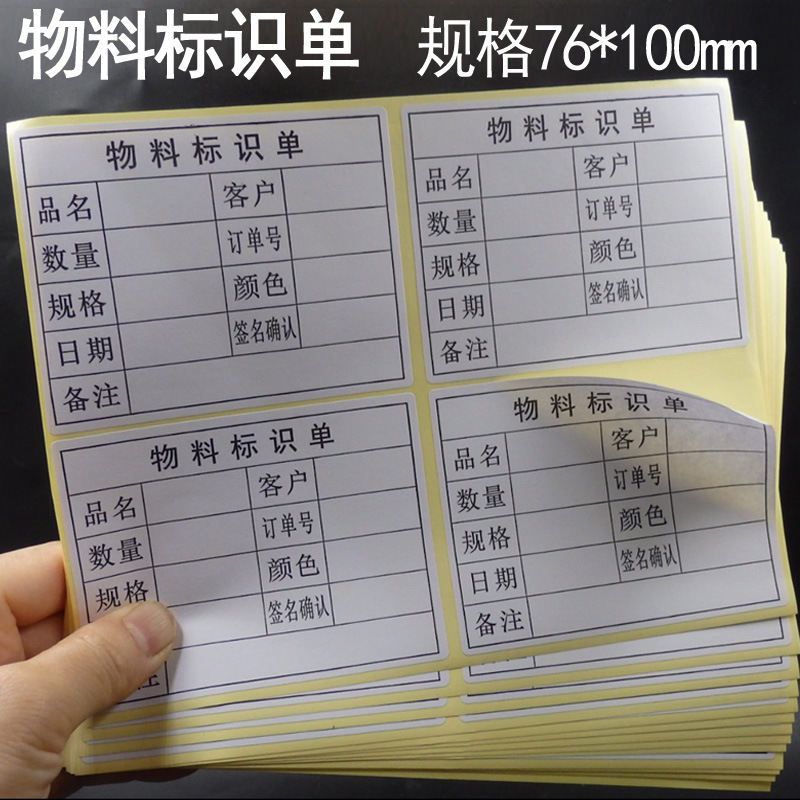 物料标识单 规格76*100mm
物料标识单
品名 客户
数量 订单号
规格 颜色
日期 签名确认
备注
物料标识单
品名 客户
数量 订单号
规格 颜色
日期 签名确认
备注
物料标识单
品名 客户
数量 订单号
规格 颜色
签名确认
注
物料标识单
品名 客户
数量 订单号
规格 颜色
日期 签名确认
备注